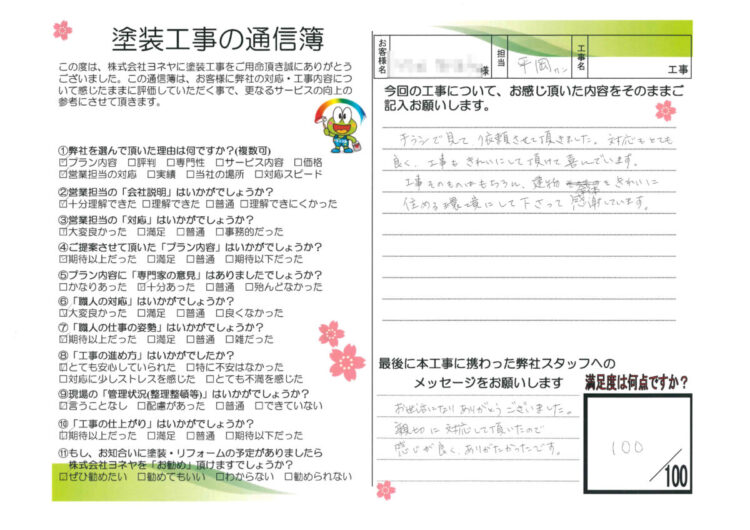 塗装工事の通信簿
この度は、株式会社ヨネヤに塗装工事をご用命頂き誠にありがとう
ございました。この通信簿は、お客様に弊社の対応・工事内容につ
いて感じたままに評価していただく事で、更なるサービスの向上の
参考にさせて頂きます。
①弊社を選んで頂いた理由は何ですか?(複数可)
☑プラン内容 □評判 □専門性 □サービス内容 □価格
☑営業担当の対応 □実績 □当社の場所 □対応スピード
②営業担当の「会社説明」はいかがでしょうか?
☑十分理解できた □理解できた □普通 □理解できにくかった
③営業担当の「対応」はいかがでしょうか?
☑大変良かった □満足 □普通 □事務的だった
④ご提案させて頂いた「プラン内容」はいかがでしょうか?
☑期待以上だった □満足 □普通 □期待以下だった
⑤プラン内容に「専門家の意見」はありましたでしょうか?
□かなりあった ☑十分あった □普通 □殆んどなかった
⑥「職人の対応」はいかがでしょうか?
☑大変良かった □満足 □普通 □良くなかった
⑦「職人の仕事の姿勢」はいかがでしょうか?
☑期待以上だった □満足 □普通 □雑だった
⑧「工事の進め方」はいかがでしたか?
☑とても安心していられた □特に不安はなかった
□対応に少しストレスを感じた □とても不満を感じた
⑨現場の「管理状況(整理整頓等)」はいかがでしょうか?
☑言うことなし □配慮があった □普通 □できていない
⑩「工事の仕上がり」はいかがでしょうか?
☑期待以上だった □満足 □普通 □期待以下だった
⑪もし、お知合いに塗装・リフォームの予定がありましたら
株式会社ヨネヤを「お勧め」頂けますでしょうか?
☑ぜひ勧めたい □勧めてもいい □わからない □勧められない
お客様名 様 担当 平岡サン 工事名 工事
今回の工事について、お感じ頂いた内容をそのままご
記入お願いします。
チラシで見て依頼させて頂きました。対応もとても
良く、工事もきれいにして頂けて喜んでいます。
工事そのものはもちろん、建物もきれいに
住める環境にして下さって感謝しています。
最後に本工事に携わった弊社スタッフへの
メッセージをお願いします
お世話になりありがとうございました。
親切に対応して頂いたので
感じが良く、ありがたかったです。
満足度は何点ですか?
100
/100